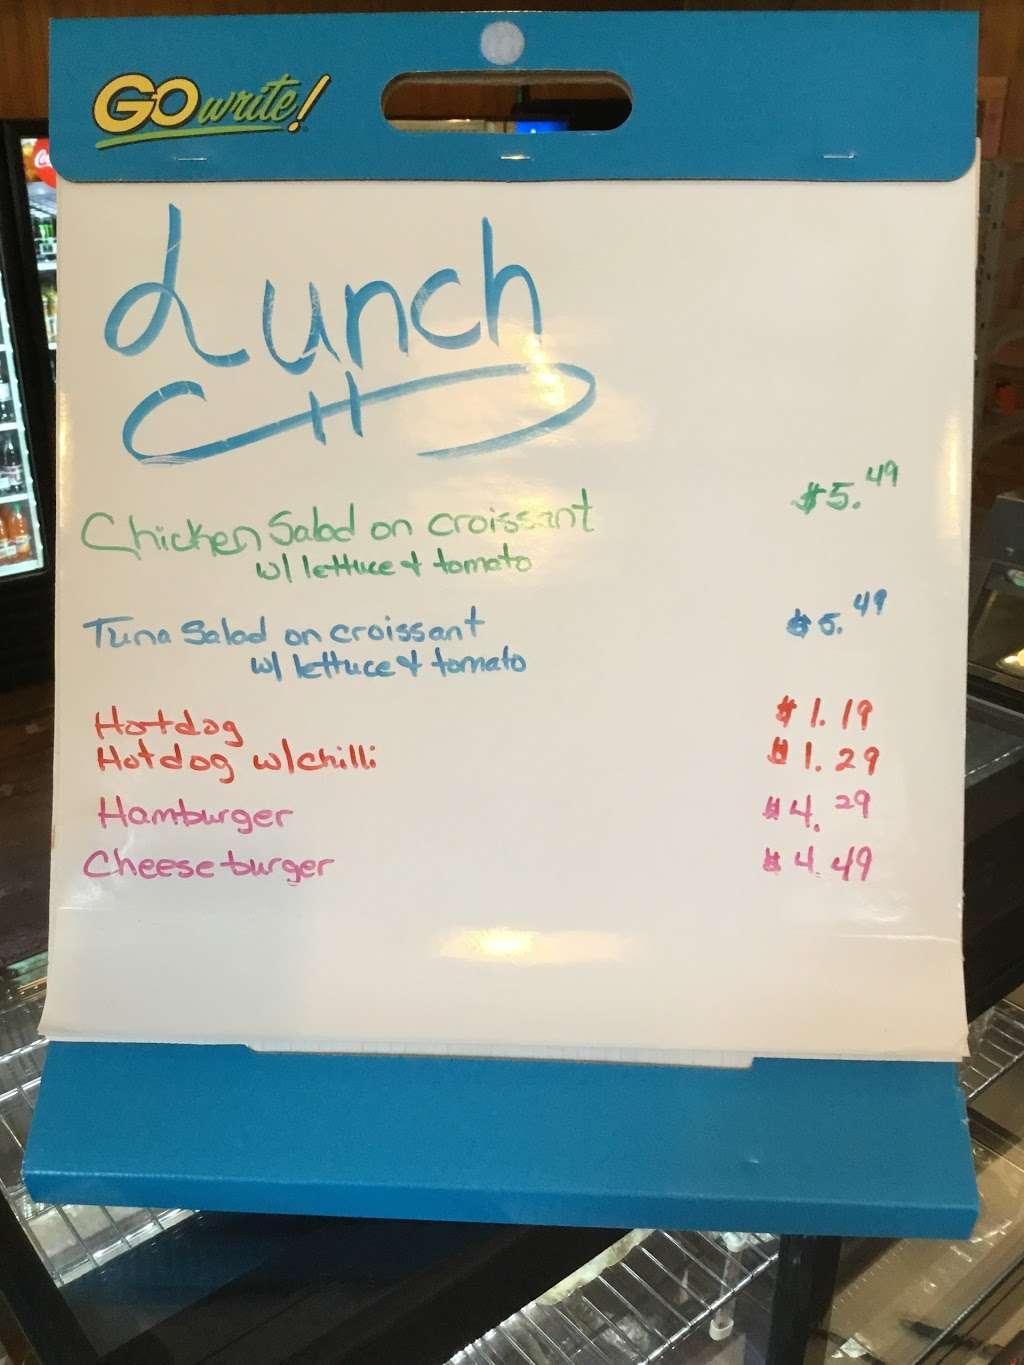 GO write!
Lunch
Chicken Salad on croissant $5.49
w/ lettuce & tomato
Tuna Salad on croissant $5.49
w/ lettuce & tomato
Hotdog $1.19
Hotdog w/chilli $1.29
Hamburger $4.29
Cheeseburger $4.49